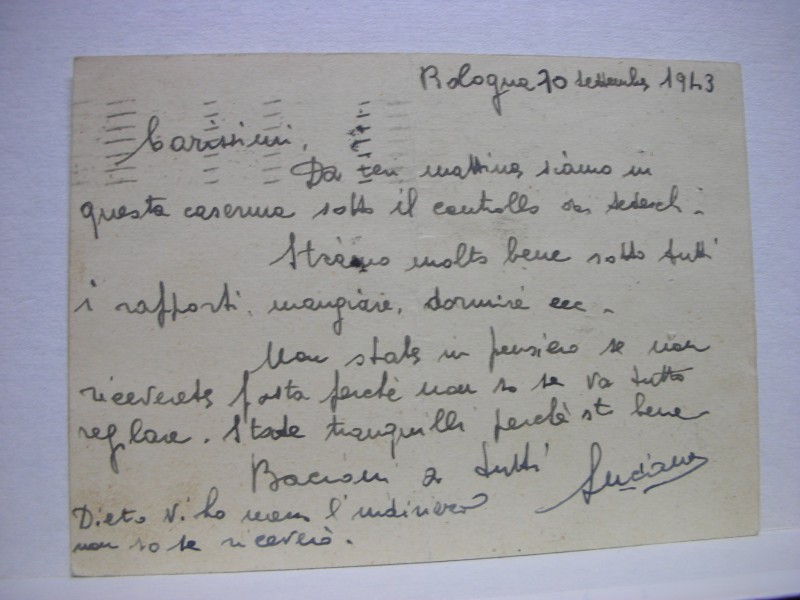 Bologna 10 settembre 1943
Carissimi,
Da ieri mattina siamo in
questa caserma sotto il controllo dei tedeschi.
Stiamo molto bene sotto tutti
i rapporti, mangiare, dormire ecc.
Non state in pensiero se non
riceverete posta perchè non so se va tutto
reglare. State tranquilli perchè sto bene
Bacioni a tutti Luciano
Dieto vi ho mess l'indirizzo
non so se riceverò.